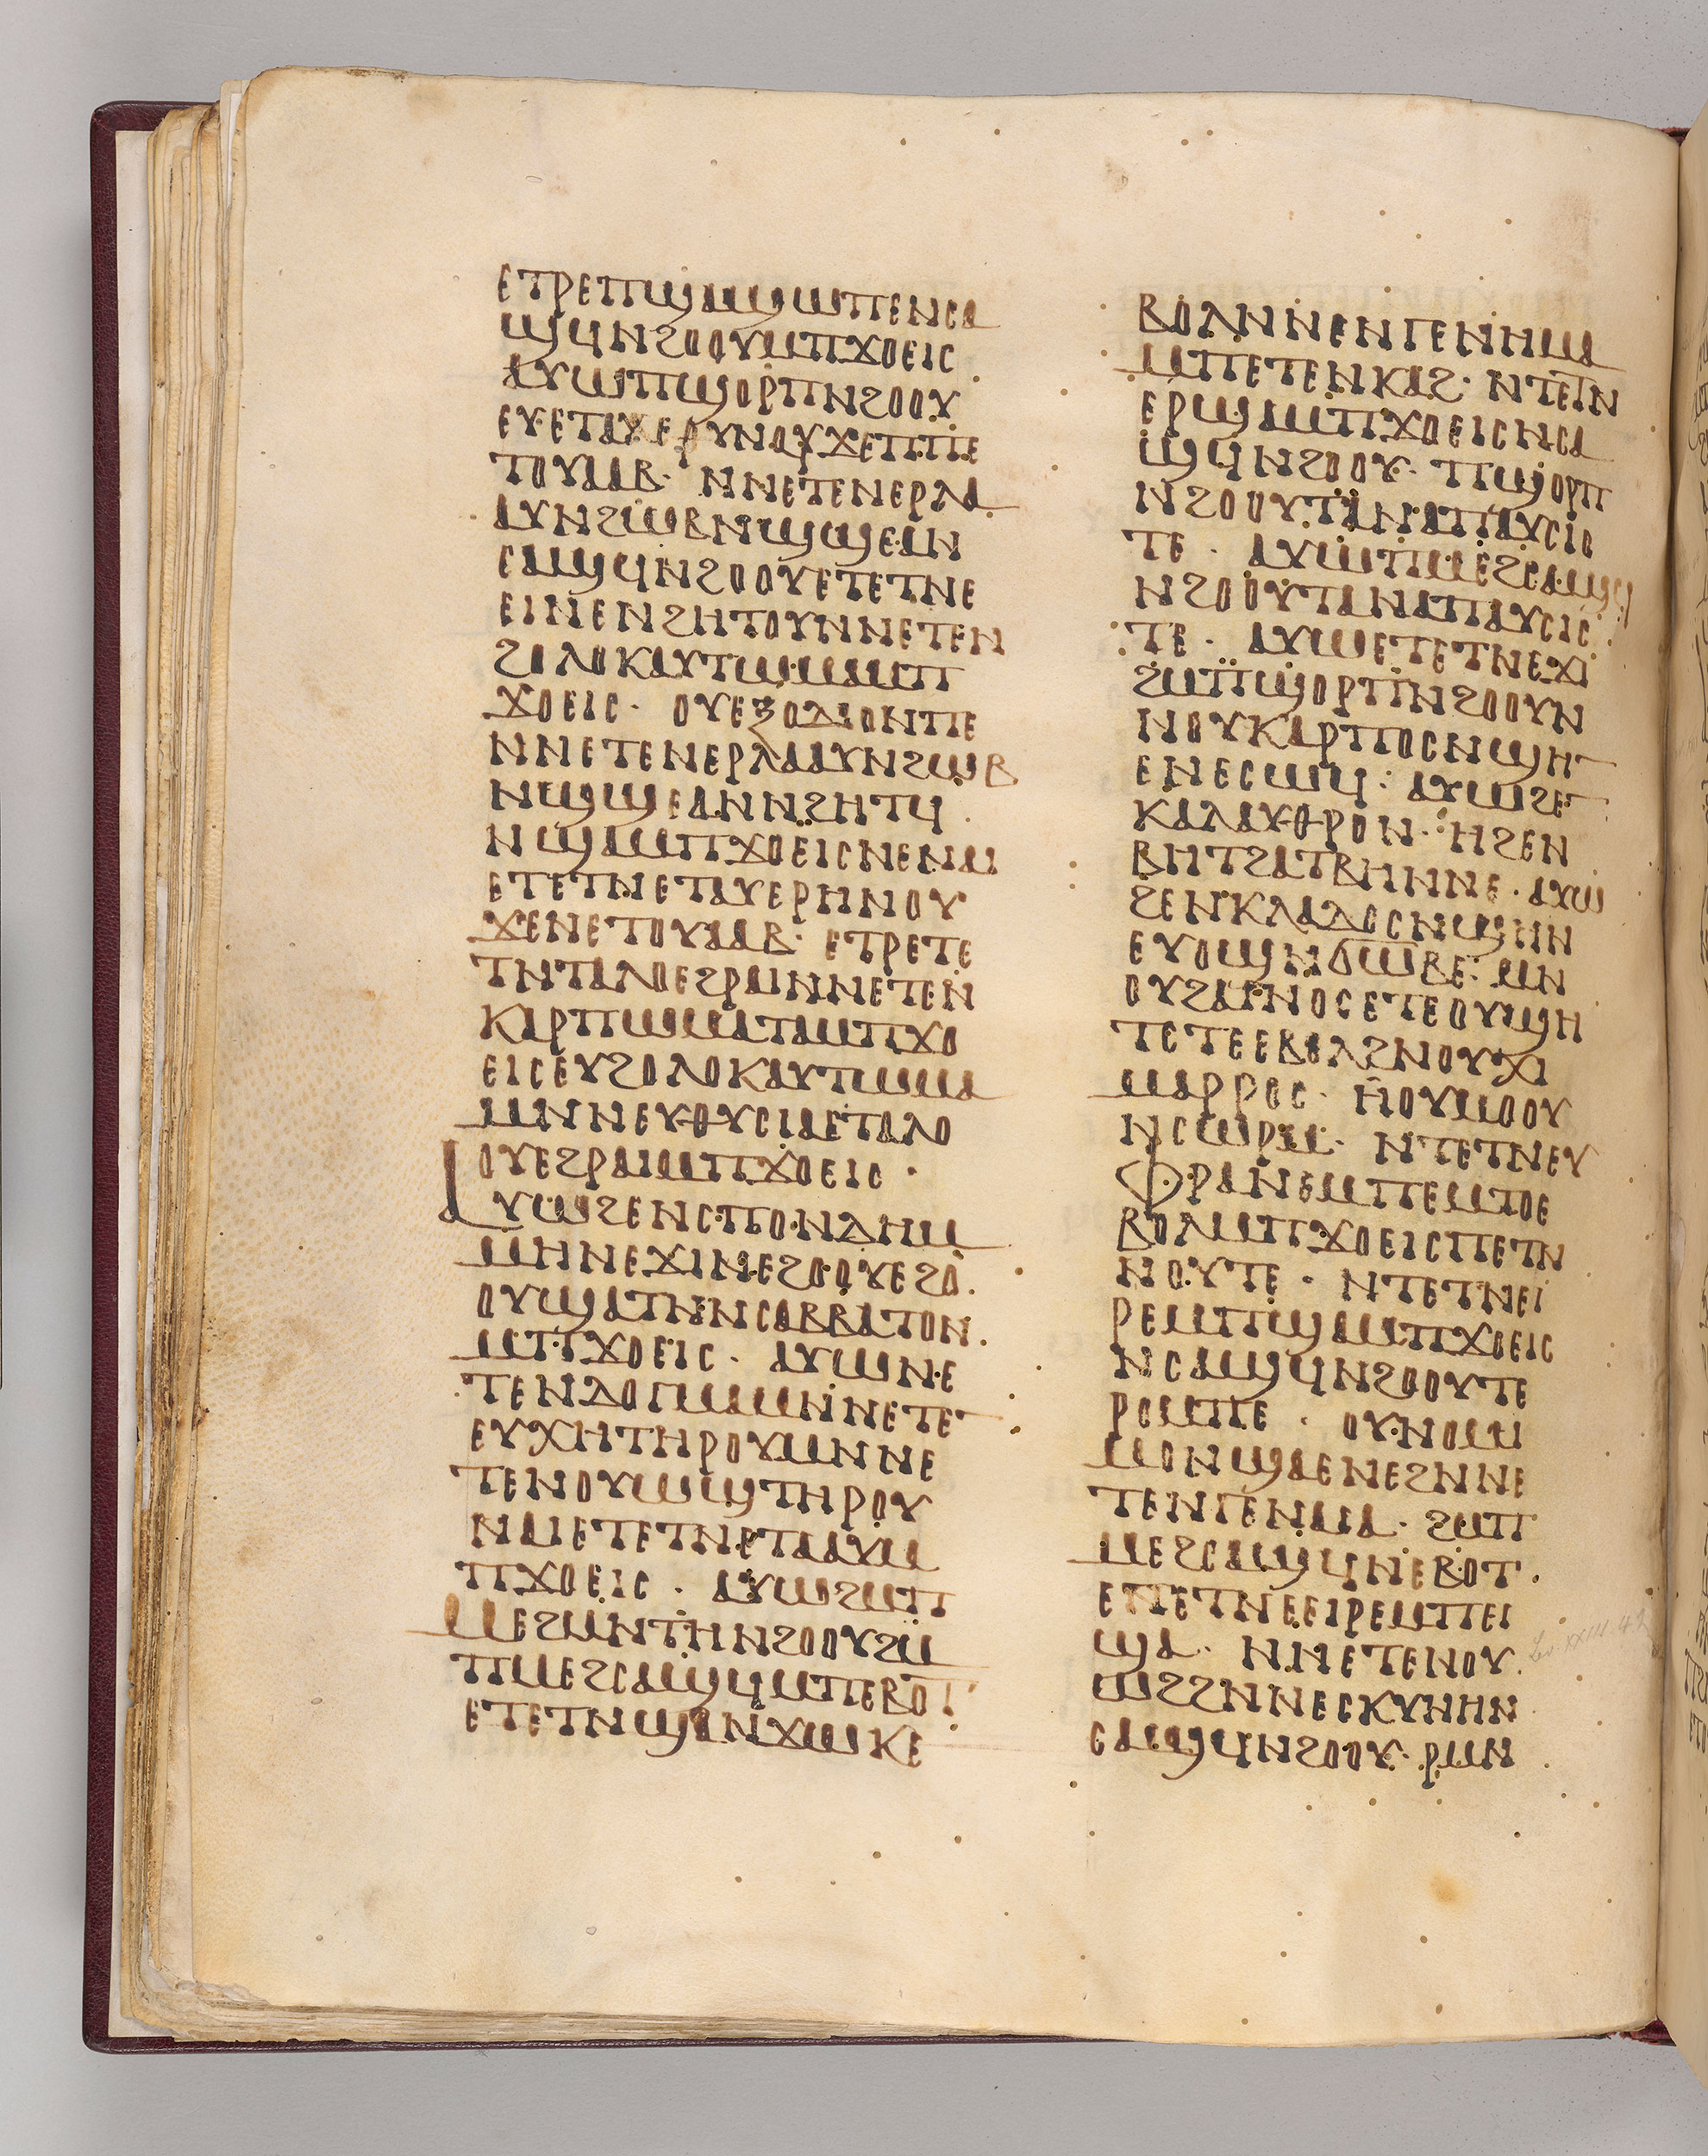 ⲉⲧⲣⲉⲡϣⲁϣⲱⲡⲉⲛⲥⲁ
ϣϥⲛϩⲟⲟⲩⲙⲡϫⲟⲉⲓⲥ
ⲁⲩⲱⲡϣⲟⲣⲡⲛϩⲟⲟⲩ
ⲉⲩⲉⲧⲁϫⲉⲟⲩⲛⲟⲩϫⲉⲡⲡⲉ
ⲧⲟⲩⲁⲁⲃ· ⲛⲛⲉⲧⲉⲛⲉⲣⲗⲁ
ⲁⲩⲛϩⲱⲃⲛϣϣⲉⲁⲛ
ⲥⲁϣϥⲛϩⲟⲟⲩⲉⲧⲉⲧⲛⲉ
ⲉⲓⲛⲉⲛϩⲏⲧⲟⲩⲛⲛⲉⲧⲉⲛ
ϩⲟⲗⲟⲕⲁⲩⲧⲱⲙⲁⲙⲡ
ϫⲟⲉⲓⲥ· ⲟⲩⲉⲝⲟⲇⲓⲟⲛⲡⲉ
ⲛⲛⲉⲧⲉⲛⲉⲣⲗⲁⲁⲩⲛϩⲱⲃ
ⲛϣϣⲉⲁⲛⲛϩⲏⲧϥ
ⲛϣⲁⲙⲡϫⲟⲉⲓⲥⲛⲉⲛⲁⲓ
ⲉⲧⲉⲧⲛⲉⲧⲁⲩⲉⲣⲏⲛⲟⲩ
ϫⲉⲛⲉⲧⲟⲩⲁⲁⲃ· ⲉⲧⲣⲉⲧⲉ
ⲧⲛⲧⲁⲗⲟⲉϩⲣⲁⲓⲛⲛⲉⲧⲉⲛ
ⲕⲁⲣⲡⲱⲙⲁⲧⲁⲙⲡϫⲟ
ⲉⲓⲥⲉⲩϩⲟⲗⲟⲕⲁⲩⲧⲱⲙⲁ
ⲙⲛⲛⲉⲩⲑⲩⲥⲓⲁⲉⲧⲁⲗⲟ
ⲟⲩⲉϩⲣⲁⲓⲙⲡϫⲟⲉⲓⲥ·
ⲁⲩⲱϩⲉⲛⲥⲡⲟⲛⲇⲏⲙ
ⲙⲏⲛⲉⲭⲓⲛⲉϩⲟⲟⲩⲉϩⲟ
ⲟⲩϣⲁⲧⲛⲛⲥⲁⲃⲃⲁⲧⲟⲛ
ⲙⲡϫⲟⲉⲓⲥ· ⲁⲩⲱⲛⲉ
ⲧⲉⲛⲇⲟⲅⲙⲁⲙⲛⲛⲉⲧⲉ
ⲉⲩⲭⲏⲧⲏⲣⲟⲩⲙⲛⲛⲉ
ⲧⲉⲛⲟⲩⲱϣⲧⲏⲣⲟⲩ
ⲛⲁⲓⲉⲧⲉⲧⲛⲉⲧⲁⲁⲩⲙ
ⲡϫⲟⲉⲓⲥ· ⲁⲩⲱϩⲙⲡ
ⲙⲉϩⲙⲛⲧⲏⲛϩⲟⲟⲩϩⲙ
ⲡⲙⲉϩⲥⲁϣϥⲙⲡⲉⲃⲟⲧ
ⲉⲧⲉⲧⲛϣⲁⲛϫⲱⲕⲉ
ⲃⲟⲗⲛⲛⲉⲛⲅⲉⲛⲏⲙⲁ
ⲙⲡⲉⲧⲉⲛⲕⲁϩ· ⲛⲧⲉⲧⲛ
ⲉⲣϣⲁⲙⲡϫⲟⲉⲓⲥⲛⲥⲁ
ϣϥⲛϩⲟⲟⲩ· ⲡϣⲟⲣⲡ
ⲛϩⲟⲟⲩⲧⲁⲛⲁⲡⲁⲩⲥⲓⲥ
ⲧⲉ· ⲁⲩⲱⲡⲙⲉϩⲥⲁϣϥ
ⲛϩⲟⲟⲩⲧⲁⲛⲁⲡⲁⲩⲥⲓⲥ
ⲧⲉ· ⲁⲩⲱⲉⲧⲉⲧⲛⲉϫⲓ
ϩⲙⲡϣⲟⲣⲡⲛϩⲟⲟⲩⲛ
ⲛⲟⲩⲕⲁⲣⲡⲟⲥⲛϣⲏ
ⲉⲛⲉⲥⲱϥ: ⲁⲩⲱϩⲉ
ⲕⲁⲗⲁⲩⲑⲣⲟⲛ· ⲏϩⲉⲛ
ⲃⲏⲧϩⲁⲧⲃⲏⲛⲛⲉ· ⲁⲩⲱ
ϩⲉⲛⲕⲗⲁⲇⲟⲥⲛϣⲏⲛ
ⲉⲩⲟϣⲛϭⲱⲃⲉ: ⲙⲛ
ⲟⲩϩⲁⲅⲛⲟⲥⲉⲧⲉⲟⲩϣⲏ
ⲧⲉⲧⲉⲉⲃⲟⲗϩⲛⲟⲩⲭⲓ
ⲙⲁⲣⲣⲟⲥ· ⲏⲟⲩⲙⲟⲟⲩ
ⲛⲥⲱⲣⲙ· ⲛⲧⲉⲧⲛⲉⲩ
ⲫⲣⲁⲛⲉⲙⲡⲉⲙⲧⲟⲉ
ⲃⲟⲗⲙⲡϫⲟⲉⲓⲥⲡⲉⲧⲛ
ⲛⲟⲩⲧⲉ· ⲛⲧⲉⲧⲛⲉⲓ
ⲣⲉⲙⲡϣⲁⲙⲡϫⲟⲉⲓⲥ
ⲛⲥⲁϣϥⲛϩⲟⲟⲩⲧⲉ
ⲣⲟⲙⲡⲉ· ⲟⲩⲛⲟⲙⲓ
ⲙⲟⲛϣⲁⲉⲛⲉϩⲛⲛⲉ
ⲧⲉⲛⲅⲉⲛⲁⲓⲁ· ϩⲙⲡ
ⲙⲉϩⲥⲁϣϥⲛⲉⲃⲟⲧ·
ⲉⲧⲉⲧⲛⲉⲉⲓⲣⲉⲙⲡⲉⲓ
ϣⲁ· ⲛⲛⲉⲧⲉⲛⲟⲩ
ⲱϩϩⲛⲛⲉⲥⲕⲩⲛⲏⲛ
ⲥⲁϣϥⲛϩⲟⲟⲩ· ⲣⲙⲛ
Lev XXIII. 42